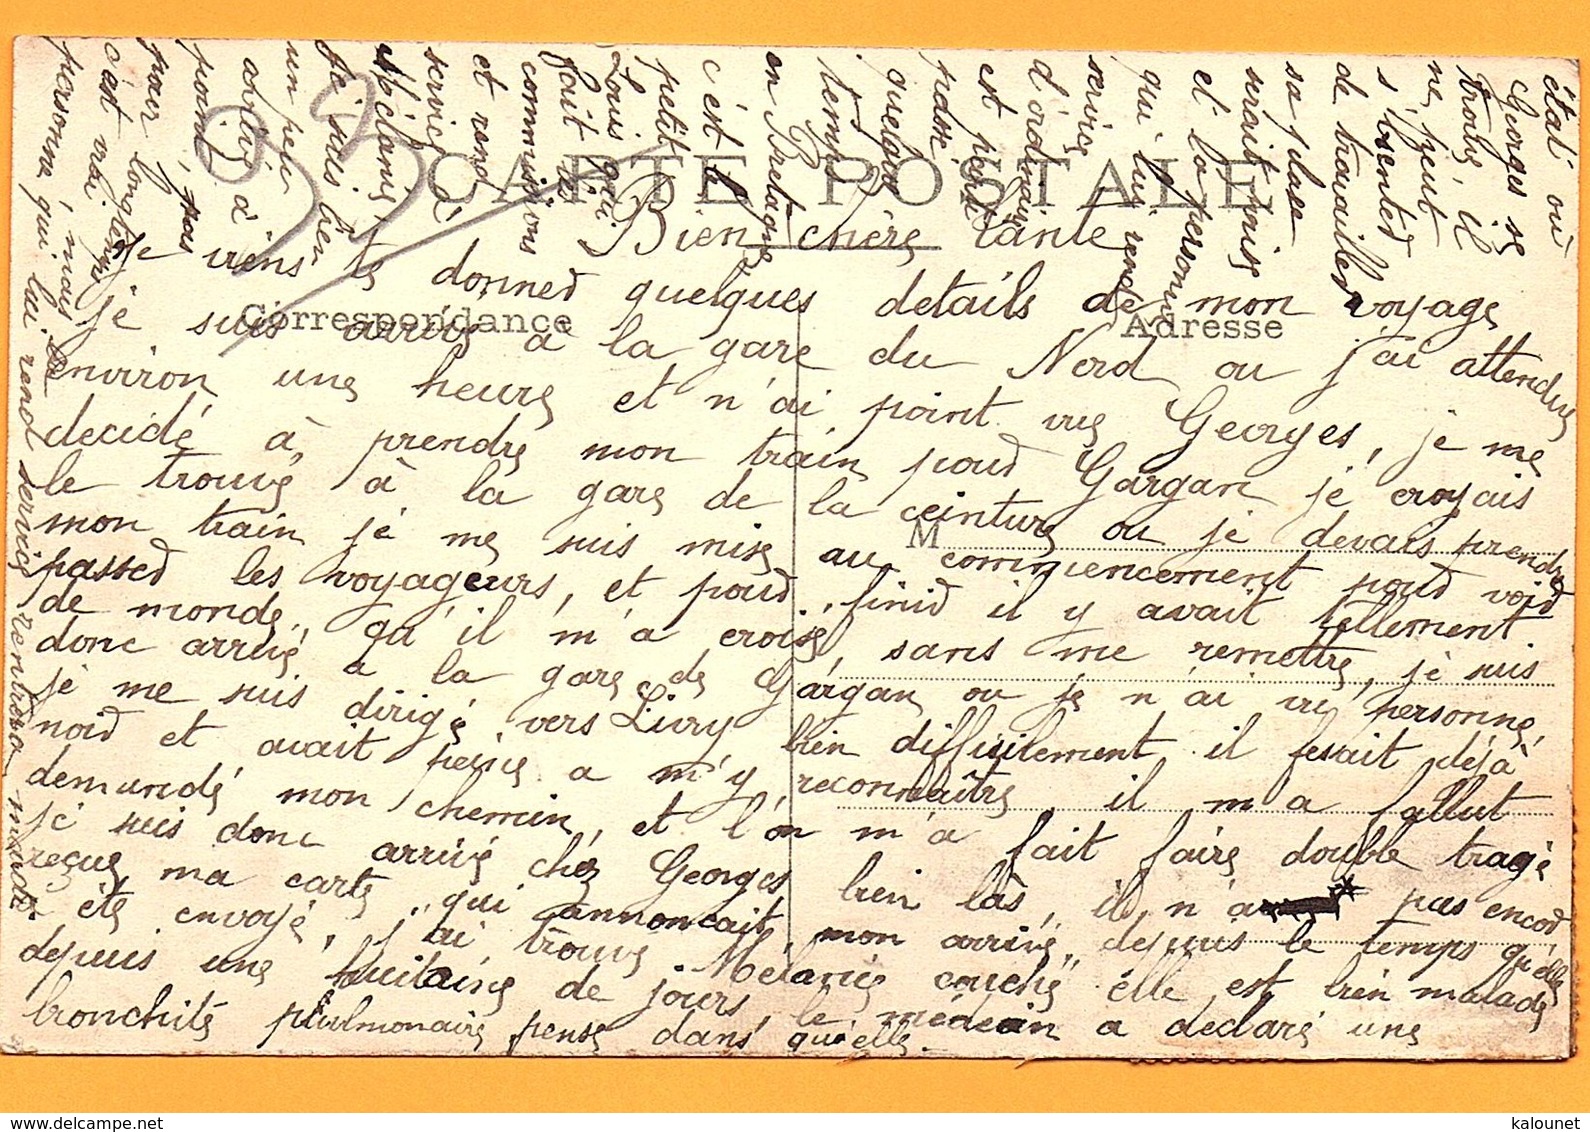 CARTE POSTALE
Correspondance
Adresse
M
Bien chère tante
Je viens te donner quelques details de mon voyage
je suis arrivé à la gare du Nord ou j'ai attendue
environ une heure et n'ai point vue Georges, je me
decidé à prendre mon train pour Gargan je croyais
le trouvé à la gare de la ceinture ou je devais prendre
mon train je me suis mise au commencement pour voir
passer les voyageurs, et pour finir il y avait tellement
de monde, qu'il m'a croisé, sans me remettre, je suis
donc arrivé a la gare de Gargan ou je n'ai vu personne,
je me suis dirigé vers Livry bien difficilement il fesait déjà
noir et avait peine a m'y reconnaître, il m'a fallut
demandé mon chemin, et l'on m'a fait faire double tragè
je suis donc arrivé chez Georges bien las, il n'a pas encor
reçue ma carte, qui annoncait mon arrivé, depuis le temps qu'elle
a été envoyé, j'ai trouve Mélanie couché elle est bien malade
depuis une huitaine de jours, le médecin a declaré une
bronchite pulmonaire, pense dans qu'elle
état où
Georges se
trouve, il
ne peut
s'absenter
de travailler
sa place
serait prise
et la personne
qui lui rend
service
d'ordinaire
est perdu
passé
quelque
temps
en Bretagne
c'est le
petit
Louis qui
fait les
commissions
et rend
service à
Mélanie,
je suis bien
un peu
arrivé à
point,
pas
pour longtemps
c'est vrai, mais
personne qui lui rend service rentrera